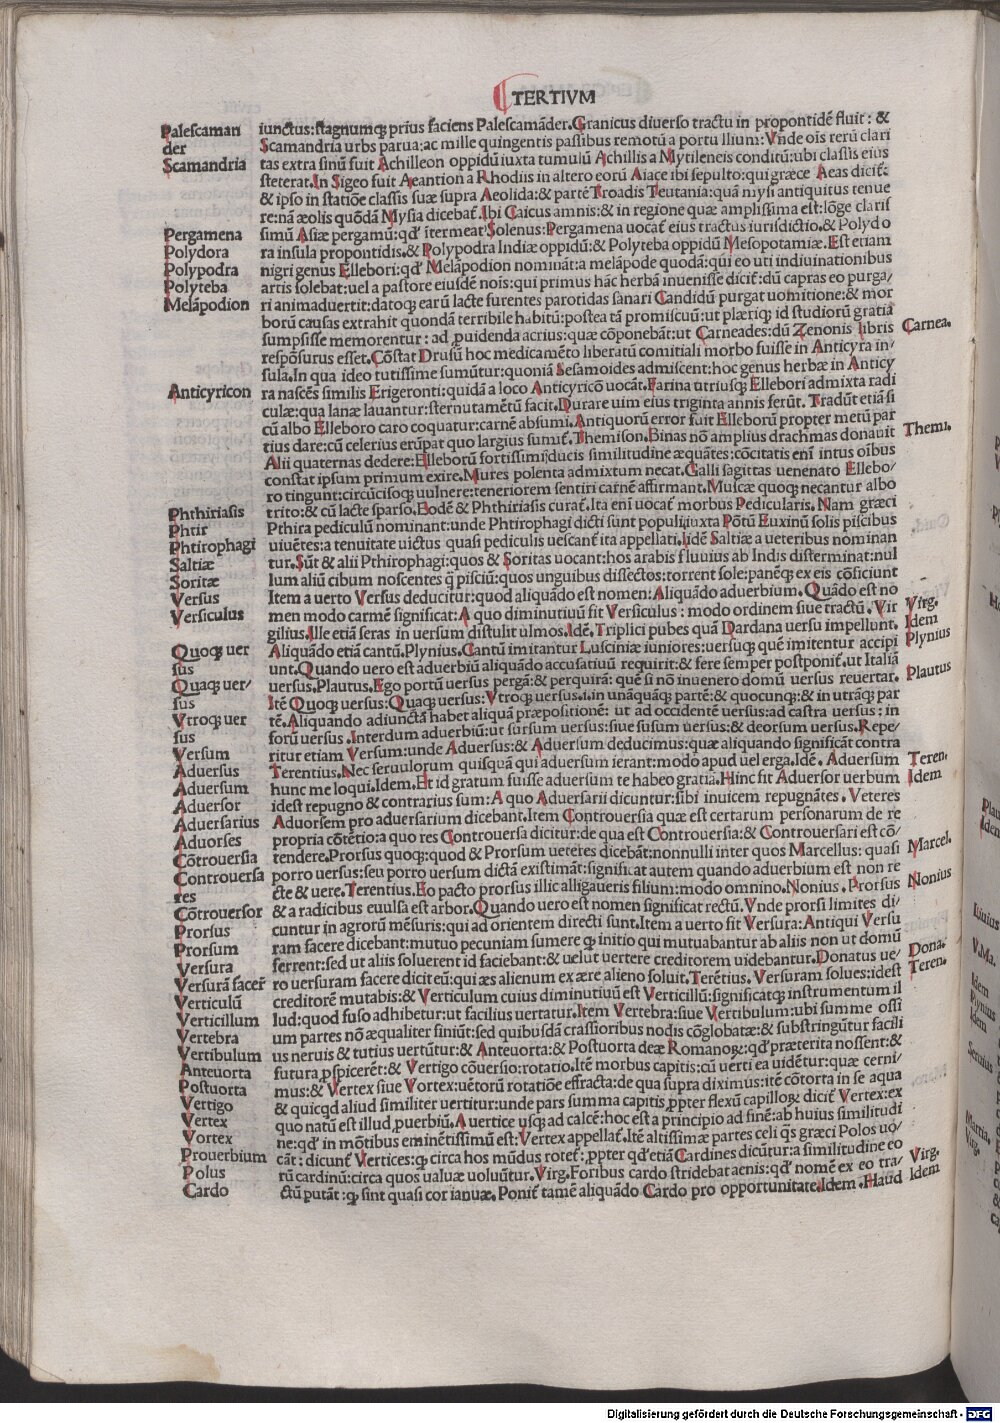 TERTIVM
Palescaman
der
Scamandria
Pergamena
Polydora
Polypodra
Polyteba
Melãpodion
Anticyricon
Phthiriasis
Phtir
Phtirophagi
Saltiæ
Soritæ
Versus
Versiculus
Quoqꝫ uer
sus
Quaqꝫ uer/
sus
Vtroqꝫ uer
sus
Versum
Aduersus
Aduersum
Aduersor
Aduersarius
Aduorses
Cõtrouersia
Controuersa
res
Cõtrouersor
Prorsus
Prorsum
Versura
Versurã facer̃
Verticulũ
Verticillum
Vertebra
Vertibulum
Anteuorta
Postuorta
Vertigo
Vertex
Vortex
Prouerbium
Polus
Cardo
iunctus: stagnumqꝫ prius faciens Palescamãder. Granicus diuerso tractu in propontidẽ fluit: &
Scamandria urbs parua: ac mille quingentis passibus remotũ a portu Ilium: Vnde oĩs rerũ clari
tas extra sinũ fuit Achilleon oppidũ iuxta tumulũ Achillis a Mytileneis conditũ: ubi classis eius
steterat. In Sigeo fuit Aeantion a Rhodiis in altero eorũ Aiace ibi sepulto: qui græce Aeas dicit̃:
& ipso in statiõe classis suæ supra Aeolida: & partẽ Troadis Teutania: quã mysi antiquitus tenue
re: nã æolis quõdã Mysia dicebat̃. Ibi Caicus amnis: & in regione quæ amplissima est: lõge claris
simũ Asiæ pergamũ: qđ ĩtermeat Solenus: Pergamena uocat̃ eius tractus iurisdictio. & Polydo
ra insula propontidis. & Polypodra Indiæ oppidũ: & Polyteba oppidũ Mesopotamiæ. Est etiam
nigri genus Ellebori: qđ Melãpodion nominãt: a melãpode quodã: qui eo uti indiuinationibus
artis solebat: uel a pastore eiusdẽ nois: qui primus hãc herbã inuenisse dicit̃: dũ capras eo purga/
ri animaduertit: datoqꝫ earũ lacte furentes parotidas sanari Candidũ purgat uomitione: & mor
borũ causas extrahit quondã terribile habitũ: postea tã promiscuũ: ut plæriqꝫ id studiorũ gratia
sumpsisse memorentur: ad ꝓuidenda acrius: quæ cõponebãt: ut Carneades: dũ Zenonis libris
respõsurus esset. Cõstat Drusũ hoc medicamẽto liberatũ comitiali morbo fuisse in Anticyra in/
sula. In qua ideo tutissime sumũtur: quoniã Sesamoides admiscent: hoc genus herbæ in Anticy
ra nascẽs similis Erigeronti: quidã a loco Anticyricõ uocãt. Farina utriusqꝫ Ellebori admixta radi
culæ: qua lanæ lauantur: sternutamẽtũ facit. Durare uim eius triginta annis ferũt. Tradũt etiã si
cũ albo Elleboro caro coquatur: carnẽ absumi. Antiquorũ error fuit Elleborũ propter metũ par
tius dare: cũ celerius erũpat quo largius sumit̃. Themison. Binas nõ amplius drachmas donauit
Alii quaternas dedere: Elleborũ fortissimi ducis similitudine æquãtes: cõcitatis eni intus oibus
constat ipsum primum exire. Mures polenta admixtum necat. Galli sagittas uenenato Ellebo/
ro tingunt: circũcisoqꝫ uulnere: teneriorem sentiri carnẽ affirmant. Muscæ quoqꝫ necantur albo
trito: & cũ lacte sparso. Eodẽ & Phthiriasis curat̃. Ita eni uocat̃ morbus Pedicularis. Nam græci
Pthira pediculũ nominant: unde Phtirophagi dicti sunt populi iuxta Põtũ Euxinũ solis piscibus
uiuẽtes: a tenuitate uictus quasi pediculis uescant̃ ita appellati. Iidẽ Saltiæ a ueteribus nominan
tur. Sũt & alii Pthirophagi: quos & Soritas uocant: hos arabis fluuius ab Indis disterminat: nul
lum aliũ cibum noscentes q̃ pisciũ: quos unguibus dissectos: torrent sole: panẽqꝫ ex eis cõficiunt
Item a uerto Versus deducitur: quod aliquãdo est nomen: Aliquãdo aduerbium. Quãdo est no
men modo carmẽ significat: A quo diminutiuũ fit Versiculus: modo ordinem siue tractũ. Vir
gilius. Ille etiã seras in uersum distulit ulmos. Idẽ. Triplici pubes quã Dardana uersu impellunt.
Aliquãdo etiã cantũ. Plynius. Cantũ imitantur Lusciniæ iuniores: uersusqꝫ quẽ imitentur accipi
unt. Quando uero est aduerbiũ aliquãdo accusatiuũ requirit: & fere semper postponit̃. ut Italiã
uersus. Plautus. Ego portũ uersus pergã: & perquirã: quẽ si nõ inuenero domũ uersus reuertar.
Itẽ Quoqꝫ uersus: Quaqꝫ uersus: Vtroqꝫ uersus. i. in unãquãqꝫ partẽ: & quocunqꝫ: & in utrãqꝫ par
tẽ. Aliquando adiunctã habet aliquã præpositionẽ: ut ad occidentẽ uersus: ad castra uersus: in
forũ uersus. Interdum aduerbiũ: ut sursum uersus: siue susum uersus: & deorsum uersus. Repe/
ritur etiam Versum: unde Aduersus: & Aduersum deducimus: quæ aliquando significãt contra
Terentius. Nec seruulorum quisquã qui aduersum ierant: modo apud uel erga. Idẽ. Aduersum
hunc me loqui. Idem. Et id gratum fuisse aduersum te habeo gratiã. Hinc fit Aduersor uerbum
idest repugno & contrarius sum: A quo Aduersarii dicuntur: sibi inuicem repugnãtes. Veteres
Aduorsem pro aduersarium dicebant. Item Controuersia quæ est certarum personarum de re
propria cõtẽtio: a quo res Controuersa dicitur: de qua est Controuersia: & Controuersari est cõ/
tendere. Prorsus quoqꝫ: quod & Prorsum ueteres dicebãt: nonnulli inter quos Marcellus: quasi
porro uersus: seu porro uersum dictã existimãt: significat autem quando aduerbium est non re
cte & uere. Terentius. Eo pacto prorsus illic alligaueris filium: modo omnino. Nonius. Prorsus
& a radicibus euulsa est arbor. Quando uero est nomen significat rectũ. Vnde prorsi limites di/
cuntur in agrorũ mẽsuris: qui ad orientem directi sunt. Item a uerto fit Versura: Antiqui Versu
ram facere dicebant: mutuo pecuniam sumere qꝫ initio qui mutuabantur ab aliis non ut domũ
ferrent: sed ut aliis soluerent id faciebant: & uelut uertere creditorem uidebantur. Donatus ue/
ro uersuram facere dicit eũ: qui æs alienum ex ære alieno soluit. Terẽtius. Versuram solues: idest
creditorẽ mutabis: & Verticulum cuius diminutiuũ est Verticillũ: significatqꝫ instrumentum il
lud: quod fuso adhibetur: ut facilius uertatur. Item Vertebra: siue Vertibulum: ubi summe ossi
um partes nõ æqualiter finiũt: sed quibusdã crassioribus nodis cõglobatæ: & substringũtur facili
us neruis & tutius uertũtur: & Anteuorta: & Postuorta deæ Romanoꝝ: qđ præterita nossent: &
futura ꝓspicerẽt: & Vertigo cõuersio: rotatio. Itẽ morbus capitis: cũ uerti ea uidẽtur: quæ cerni/
mus: & Vertex siue Vortex: uẽtorũ rotatiõe effracta: de qua supra diximus: itẽ cõtorta in se aqua
& quicqd aliud similiter uertitur: unde pars summa capitis ꝓpter flexũ capilloꝝ dicit̃ Vertex: ex
quo natũ est illud ꝓuerbiũ. A uertice usqꝫ ad calcẽ: hoc est a principio ad finẽ: ab huius similitudi
ne: qđ in mõtibus eminẽtissimũ est: Vertex appellat̃. Itẽ altissimæ partes celi q̃s græci Polos uo/
cãt: dicunt̃ Vertices: qꝫ circa hos mũdus rotet̃: ꝓpter qđ etiã Cardines dicũtur: a similitudine eo
rũ cardinũ: circa quos ualuæ uoluũtur. Virg. Foribus cardo stridebat aenis: qđ nomẽ ex eo tra/
ctũ putãt: qꝫ sint quasi cor ianuæ. Ponit̃ tamẽ aliquãdo Cardo pro opportunitate. Idem. Haud
Carnea.
Themi.
Virg.
Idem
Plynius
Plautus
Teren.
Idem
Marcel.
Nonius
Dona.
Teren.
Virg.
Idem
Digitalisierung gefördert durch die Deutsche Forschungsgemeinschaft - DFG